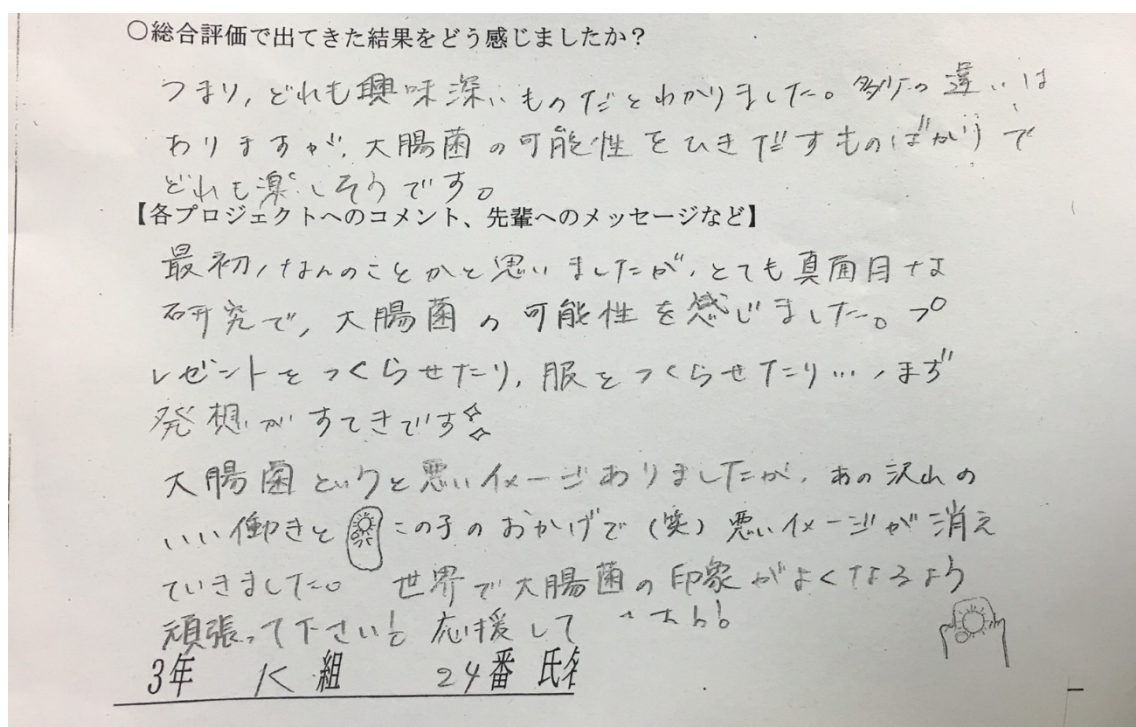 ○総合評価で出てきた結果をどう感じましたか？
つまり,どれも興味深いものだとわかりました。多少の違いは
ありますが、大腸菌の可能性をひきだすものばかりで
どれも楽しそうです。
【各プロジェクトへのコメント、先輩へのメッセージなど】
最初、なんのことかと思いましたが、とても真面目な
研究で,大腸菌の可能性を感じました。プ
レゼントをつくらせたり,服をつくらせたり…、まず
発想がすてきです
大腸菌というと悪いイメージありましたが、あの沢山の
いい働きと この子のおかげで(笑)悪いイメージが消え
ていきました。 世界で大腸菌の印象がよくなるよう
頑張って下さい! 応援して
3年 K 組 24番 氏名